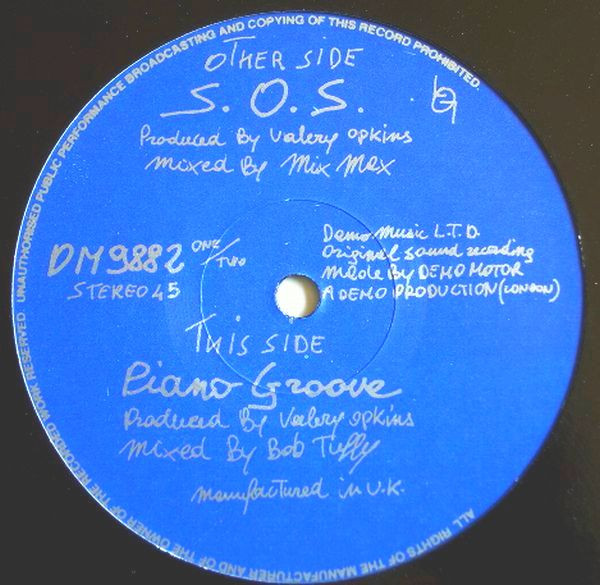 ALL RIGHTS OF THE MANUFACTURER AND OF THE OWNER OF THE RECORDED WORK RESERVED . UNAUTHORISED PUBLIC PERFORMANCE BROADCASTING AND COPYING OF THIS RECORD PROHIBITED.
OTHER SIDE
S. O. S.
Produced By Valery opkins
mixed By Mix Max
DM9882 ONE/TWO
STEREO 45
Demo Music L.T.D.
Original sound recording
made By DEMO MOTOR
A DEMO PRODUCTION (LONDON)
THIS SIDE
Piano Groove
Produced By Valery opkins
mixed By Bob Tuffy
manufactured in U.K.